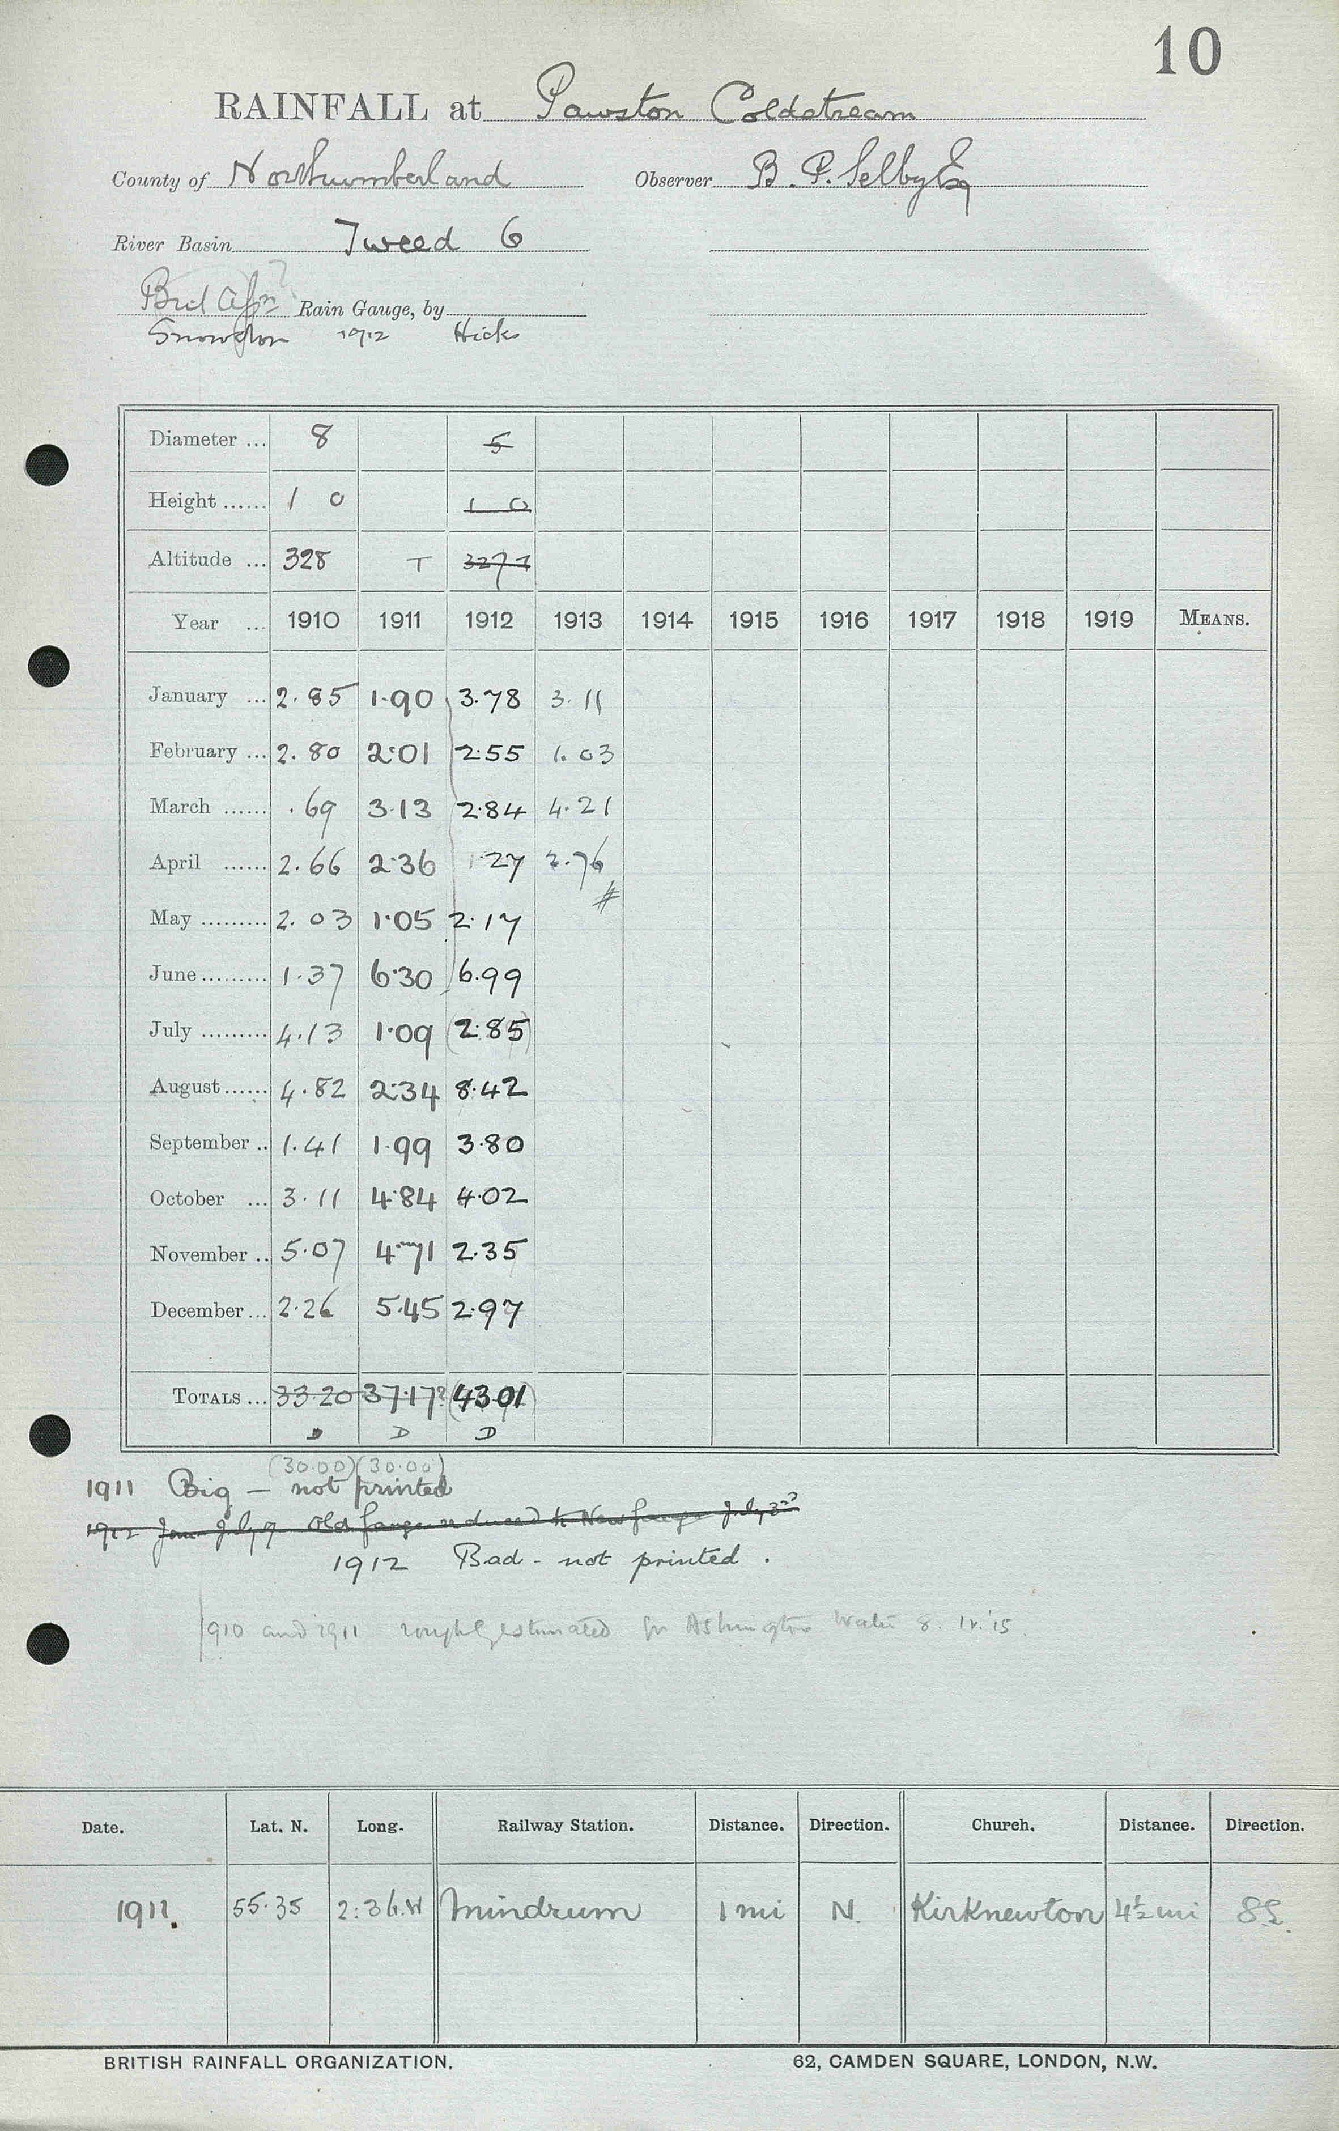 10
RAINFALL at Pawston Coldstream
County of Northumberland Observer B. P. Selby Esq
River Basin Tweed 6
Rain Gauge, by
Snowdon 1912 Hicks
Diameter ... 8 5
Height ...... 1 0 1 0
Altitude ... 328 T 327 T
Year ... 1910 1911 1912 1913 1914 1915 1916 1917 1918 1919 MEANS.
January ... 2.85 1.90 3.78 3.11
February ... 2.80 2.01 2.55 1.03
March ...... .69 3.13 2.84 4.21
April ...... 2.66 2.36 1.27 2.76
May ......... 2.03 1.05 2.17
June ......... 1.37 6.30 6.99
July ......... 4.13 1.09 (2.85)
August ...... 4.82 2.34 8.42
September .. 1.41 1.99 3.80
October ... 3.11 4.84 4.02
November .. 5.07 4.71 2.35
December ... 2.26 5.45 2.97
TOTALS ... 33.20 37.17? (43.01)
D D D
(30.00) (30.00)
1911 Big - not printed
1912 Jan - July 9 Old gauge reduced to New gauge July 3rd
1912 Bad - not printed.
1910 and 1911 roughly estimated for Ashington Water 8.12.15.
Date. Lat. N. Long. Railway Station. Distance. Direction. Church. Distance. Direction.
1911. 55.35 2:36.W Mindrum 1 mi N. Kirknewton 4½ mi
BRITISH RAINFALL ORGANIZATION. 62, CAMDEN SQUARE, LONDON, N.W.